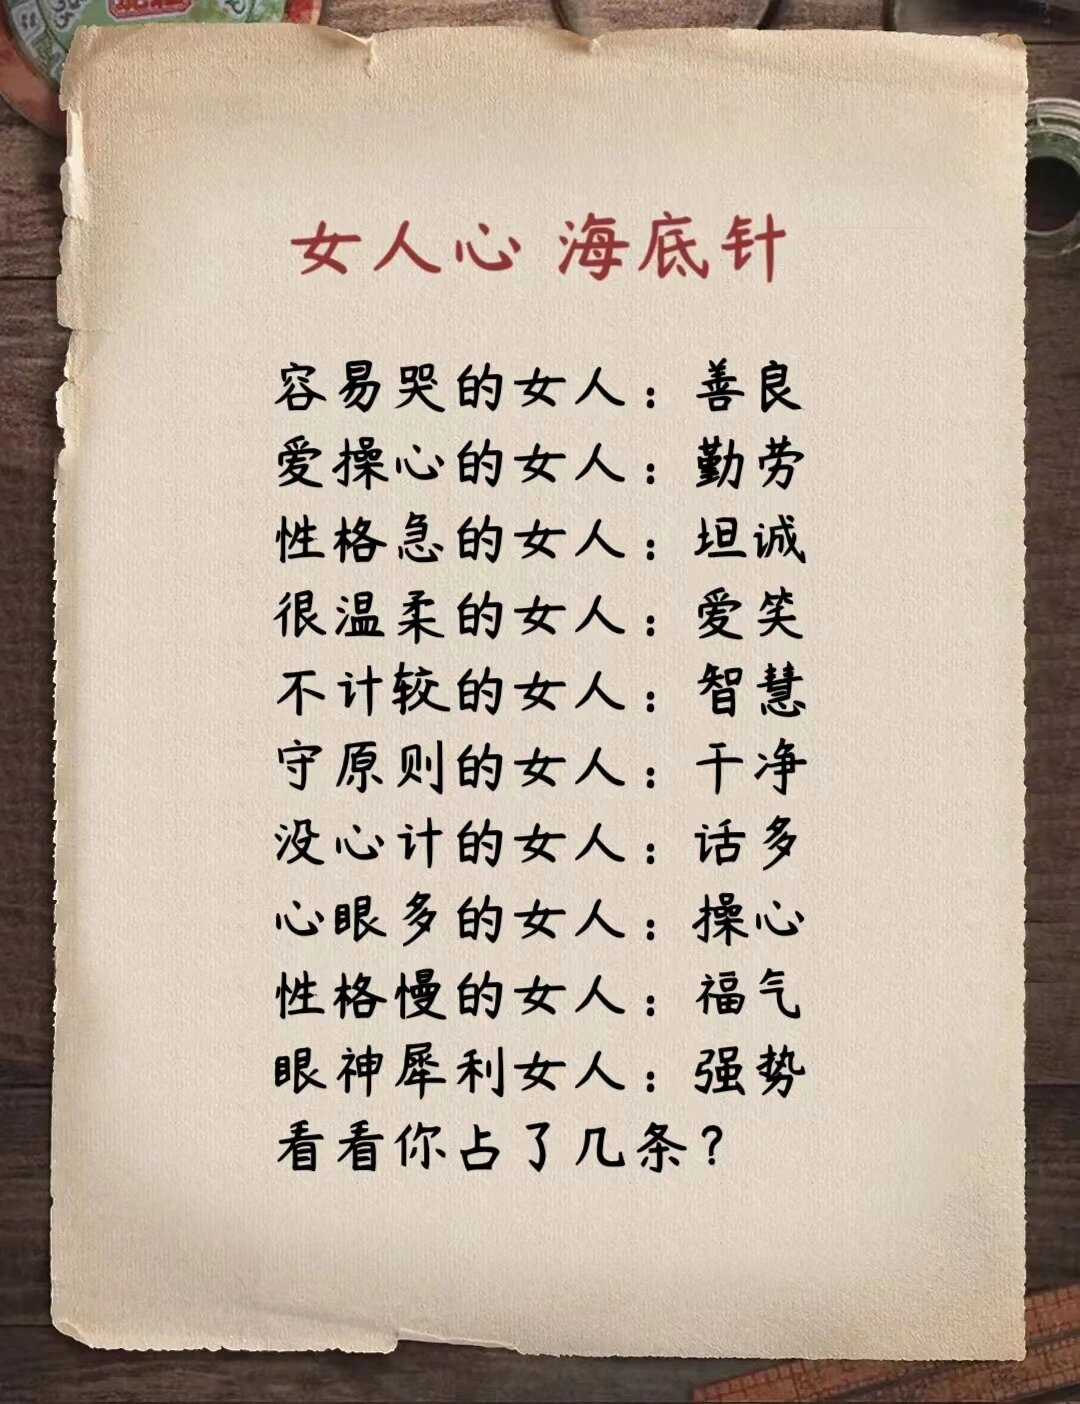 女人心 海底针
容易哭的女人：善良
爱操心的女人：勤劳
性格急的女人：坦诚
很温柔的女人：爱笑
不计较的女人：智慧
守原则的女人：干净
没心计的女人：话多
心眼多的女人：操心
性格慢的女人：福气
眼神犀利女人：强势
看看你占了几条？